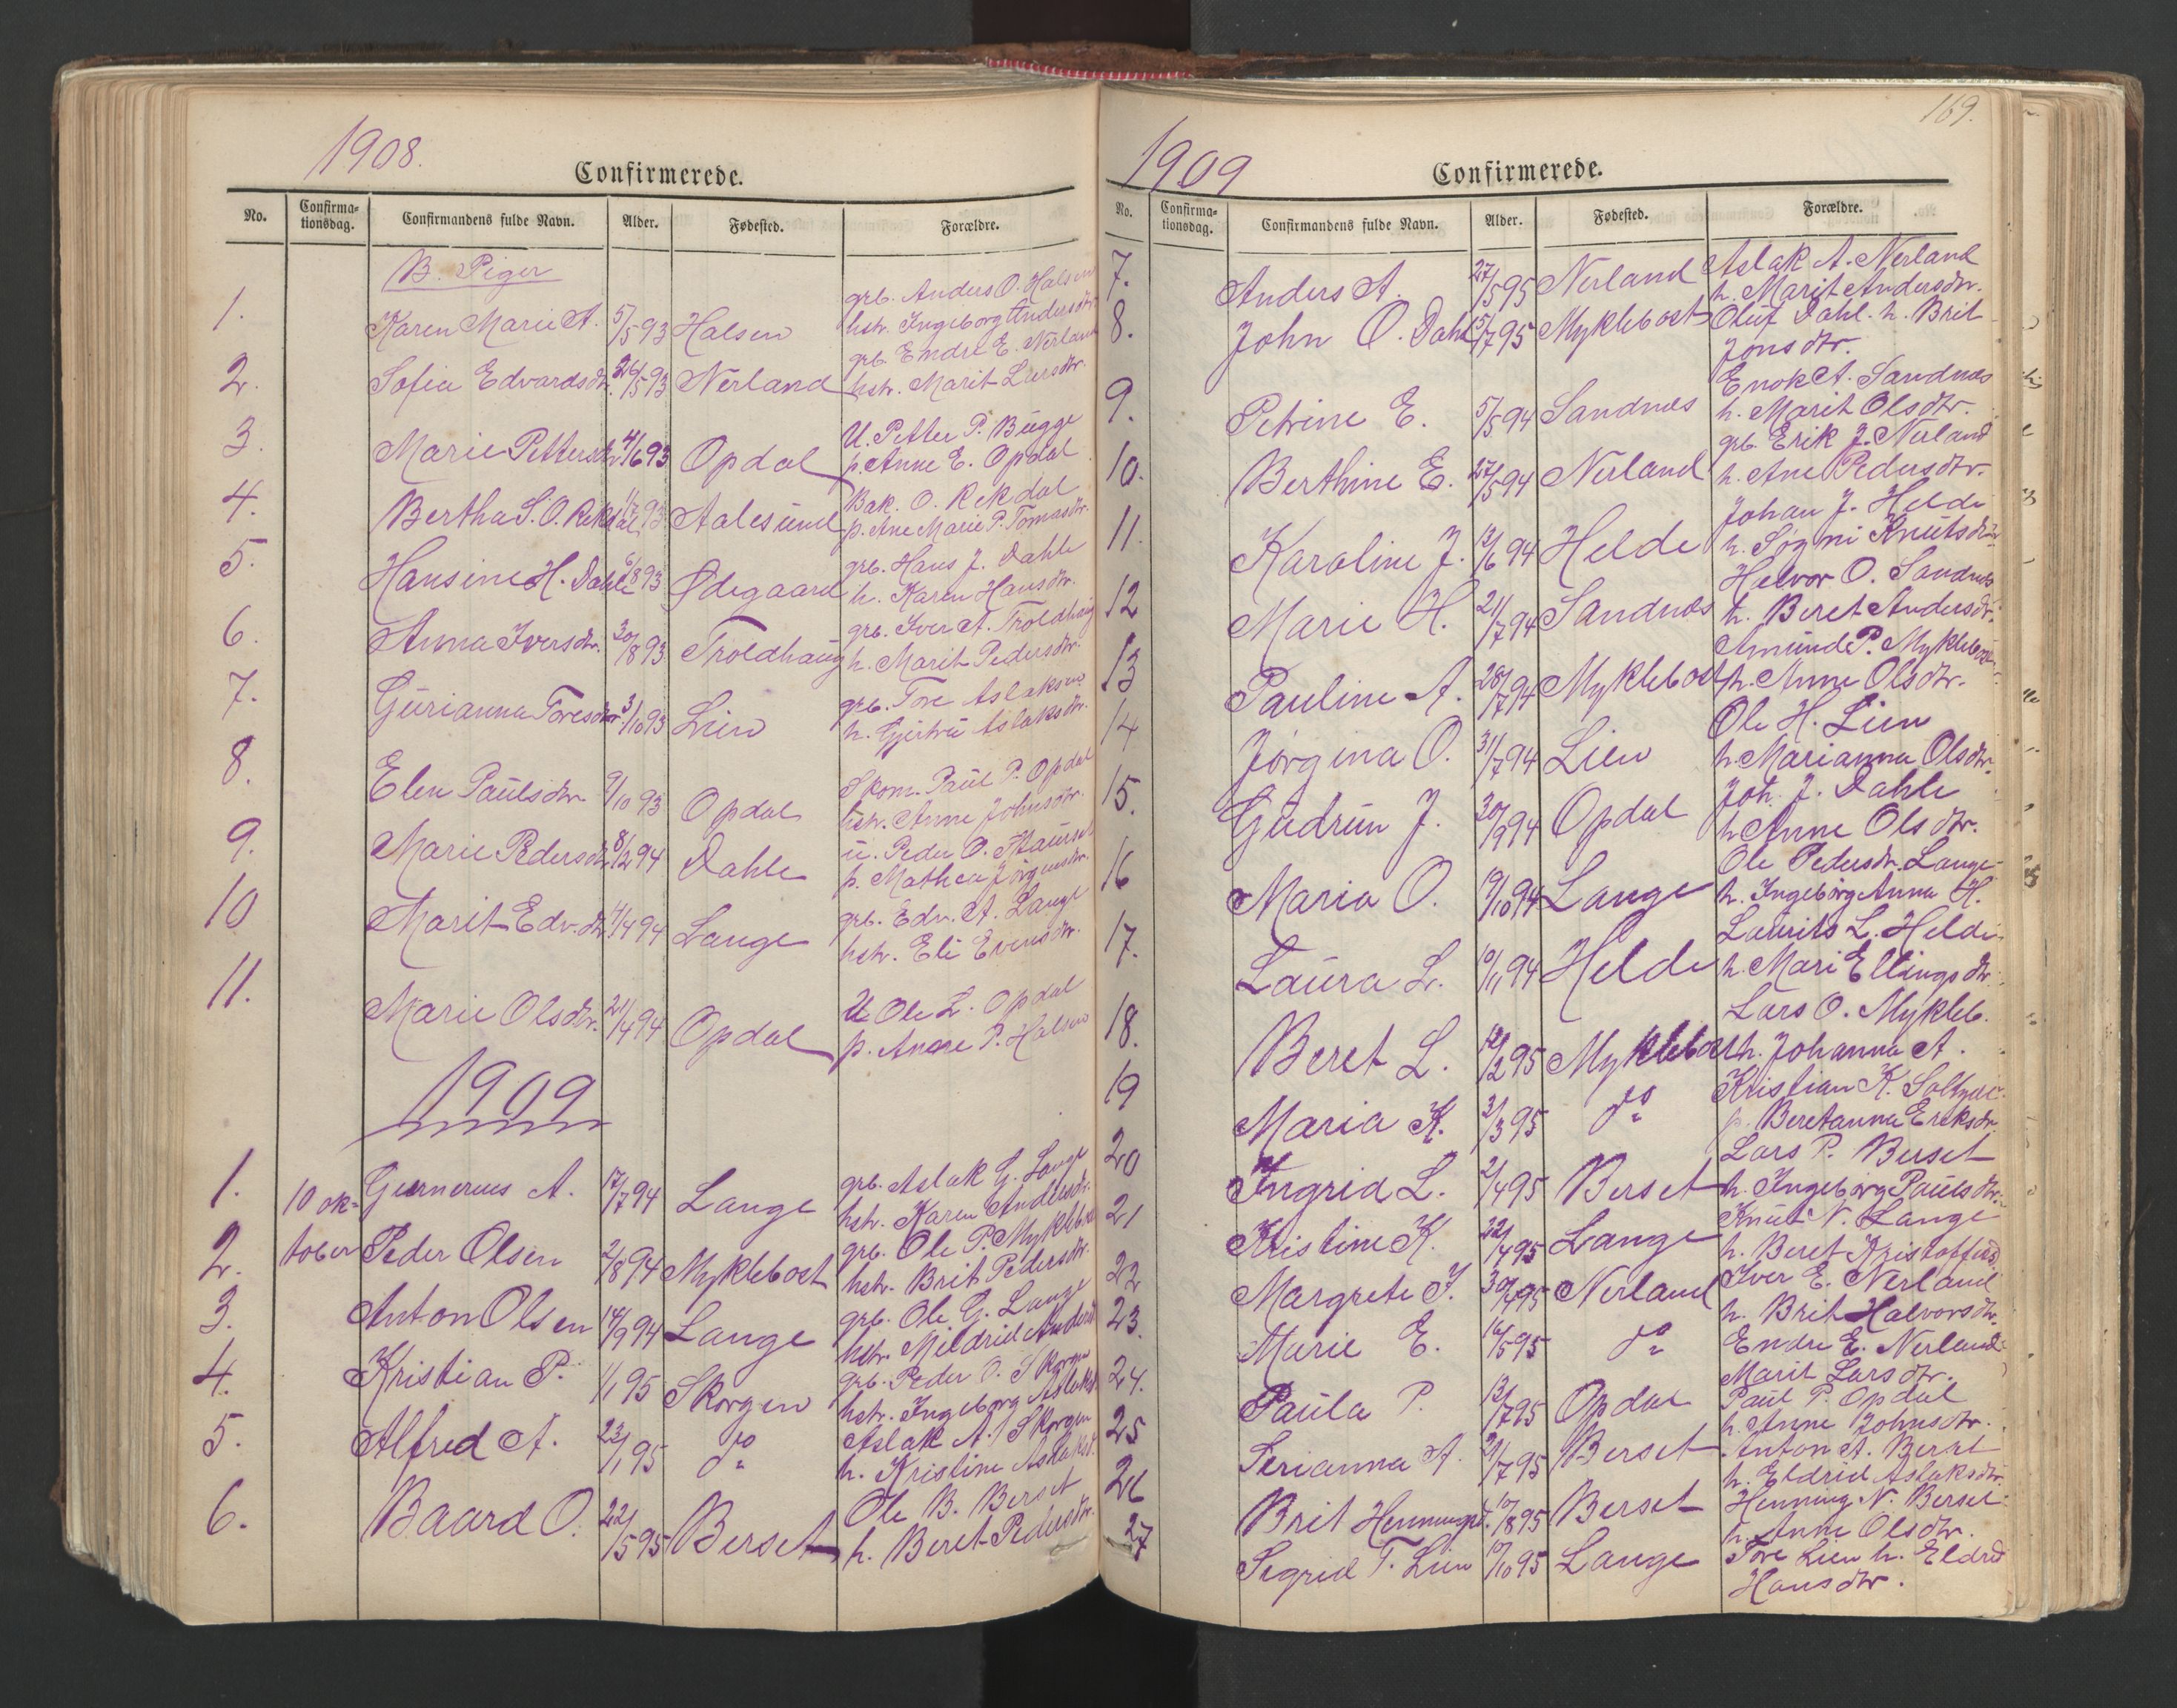 1908.
Confirmerede.
No. Confirma-tionsdag. Confirmandens fulde Navn. Alder. Fødested. Forældre.
B. Piger
1. Karen Marie A. 5/5 93 Halsen grb. Anders O. Halsen
hstr. Ingeborg Andersdtr.
2. Sofia Edvardsdtr. 26/5 93 Nerland grb. Endre E. Nerland
hstr. Marit Larsdtr.
3. Marie Pettersdtr 4/6 93 Opdal U. Petter P. Bugge
p. Anne E. Opdal
4. Bertha S. O. Rekdal 1/7 93 Aalesund Bak. O. Rekdal
p. Ane Marie P. Tomasdtr.
5. Hansine H. Dahle 6/8 93 Ødegaard grb. Hans J. Dahle
h. Karen Hansdtr.
6. Anna Iversdtr. 30/8 93 Troldhaug grb. Iver A. Troldhaug
h. Marit Pedersdtr.
7. Gurianna Toresdtr 3/10 93 Lien grb. Tore Aslaksen
h. Gjertru Aslaksdtr.
8. Elen Paulsdtr. 9/10 93 Opdal Skom. Paul P. Opdal
hstr. Anne Johnsdtr.
9. Marie Pedersdtr 8/2 94 Dahle u. Peder O. Haurset
p. Mathea Jørgensdtr.
10 Marit Edv.dtr. 4/4 94 Lange grb. Edv. A. Lange
hstr. Eli Evensdtr.
11. Marie Olsdtr. 21/4 94 Opdal U Ole L. Opdal
p. Anne P. Halsen
1909
1. 10 ok- Gunerius A. 17/7 94 Lange grb. Aslak G. Lange
hstr. Karen Andersdtr.
2. tober Peder Olsen 2/8 94 Myklebost grb. Ole P. Myklebost
hstr. Brit Pedersdtr.
3. Anton Olsen 14/9 94 Lange grb. Ole G. Lange
hstr. Mildrid Andersd
4. Kristian P. 1/1 95 Skorgen grb. Peder O. Skorgen
hstr. Ingeborg Aslaksd
5. Alfred A. 23/1 95 do Aslak A. Skorgen
h. Kristine Aslaksd.
6. Baard O. 22/5 95 Berset Ole B. Berset
h. Beret Pedersdtr.
169.
1909
Confirmerede.
No. Confirma-tionsdag. Confirmandens fulde Navn. Alder. Fødested. Forældre.
7. Anders A. 27/5 95 Nerland Aslak A. Nerland
h. Marit Andersdtr.
8. John O. Dahl 15/7 95 Myklebost Oluf Dahl. h. Brit
Jonsdtr.
9. Petrine E. 5/5 94 Sandnes Enok A. Sandnes
h. Marit Olsdtr.
10. Berthine E. 27/5 94 Nerland grb. Erik J. Nerland
h. Ane Pedersdtr.
11. Karoline J. 12/6 94 Helde Johan J. Helde
h. Søgni Knutsdtr.
12 Marie H. 21/7 94 Sandnes Helvor O. Sandnes
h. Beret Andersdtr.
13 Pauline A. 28/7 94 Myklebost Amund P. Myklebost
h. Anne Olsdtr.
14 Jørgina O. 31/7 94 Lien Ole H. Lien
h. Marianna Olsdtr.
15. Gudrun J. 30/9 94 Opdal Joh. J. Dahle
h. Anne Olsdtr.
16 Maria O. 19/10 94 Lange Ole Pedersdr. Lange
h. Ingeborg Anna H.
17. Laura L. 10/11 94 Helde Laurits L. Helde
h. Mari Ellingsdtr.
18. Beret L. 12/2 95 Myklebost Lars O. Mykleb.
h. Johanna A.
19 Maria K. 2/3 95 do Kristian K.
p. Beretanna Eriksdtr.
20 Ingrid L. 2/4 95 Berset Lars P. Berset
h. Ingeborg Paulsdtr.
21 Kristine K. 22/4 95 Lange Knut N. Lange
h. Beret Kristoffersd.
22 Margrete I. 30/4 95 Nerland Iver E. Nerland
h. Brit Halvorsdtr.
23. Marie E. 16/5 95 do Endre E. Nerland
Marit Larsdtr.
24. Paula P. 12/7 95 Opdal Paul P. Opdal
h. Anne Johnsdtr.
25 Serianna A. 21/7 95 Berset Anton A. Berset
h. Eldrid Aslaksdtr.
26 Brit Henningsd. 10/8 95 Berset Henning N. Berset
h. Anne Olsdtr.
27 Sigrid T. Lien 10/10 95 Lange Tore Lien h. Eldrid
Hansdtr.